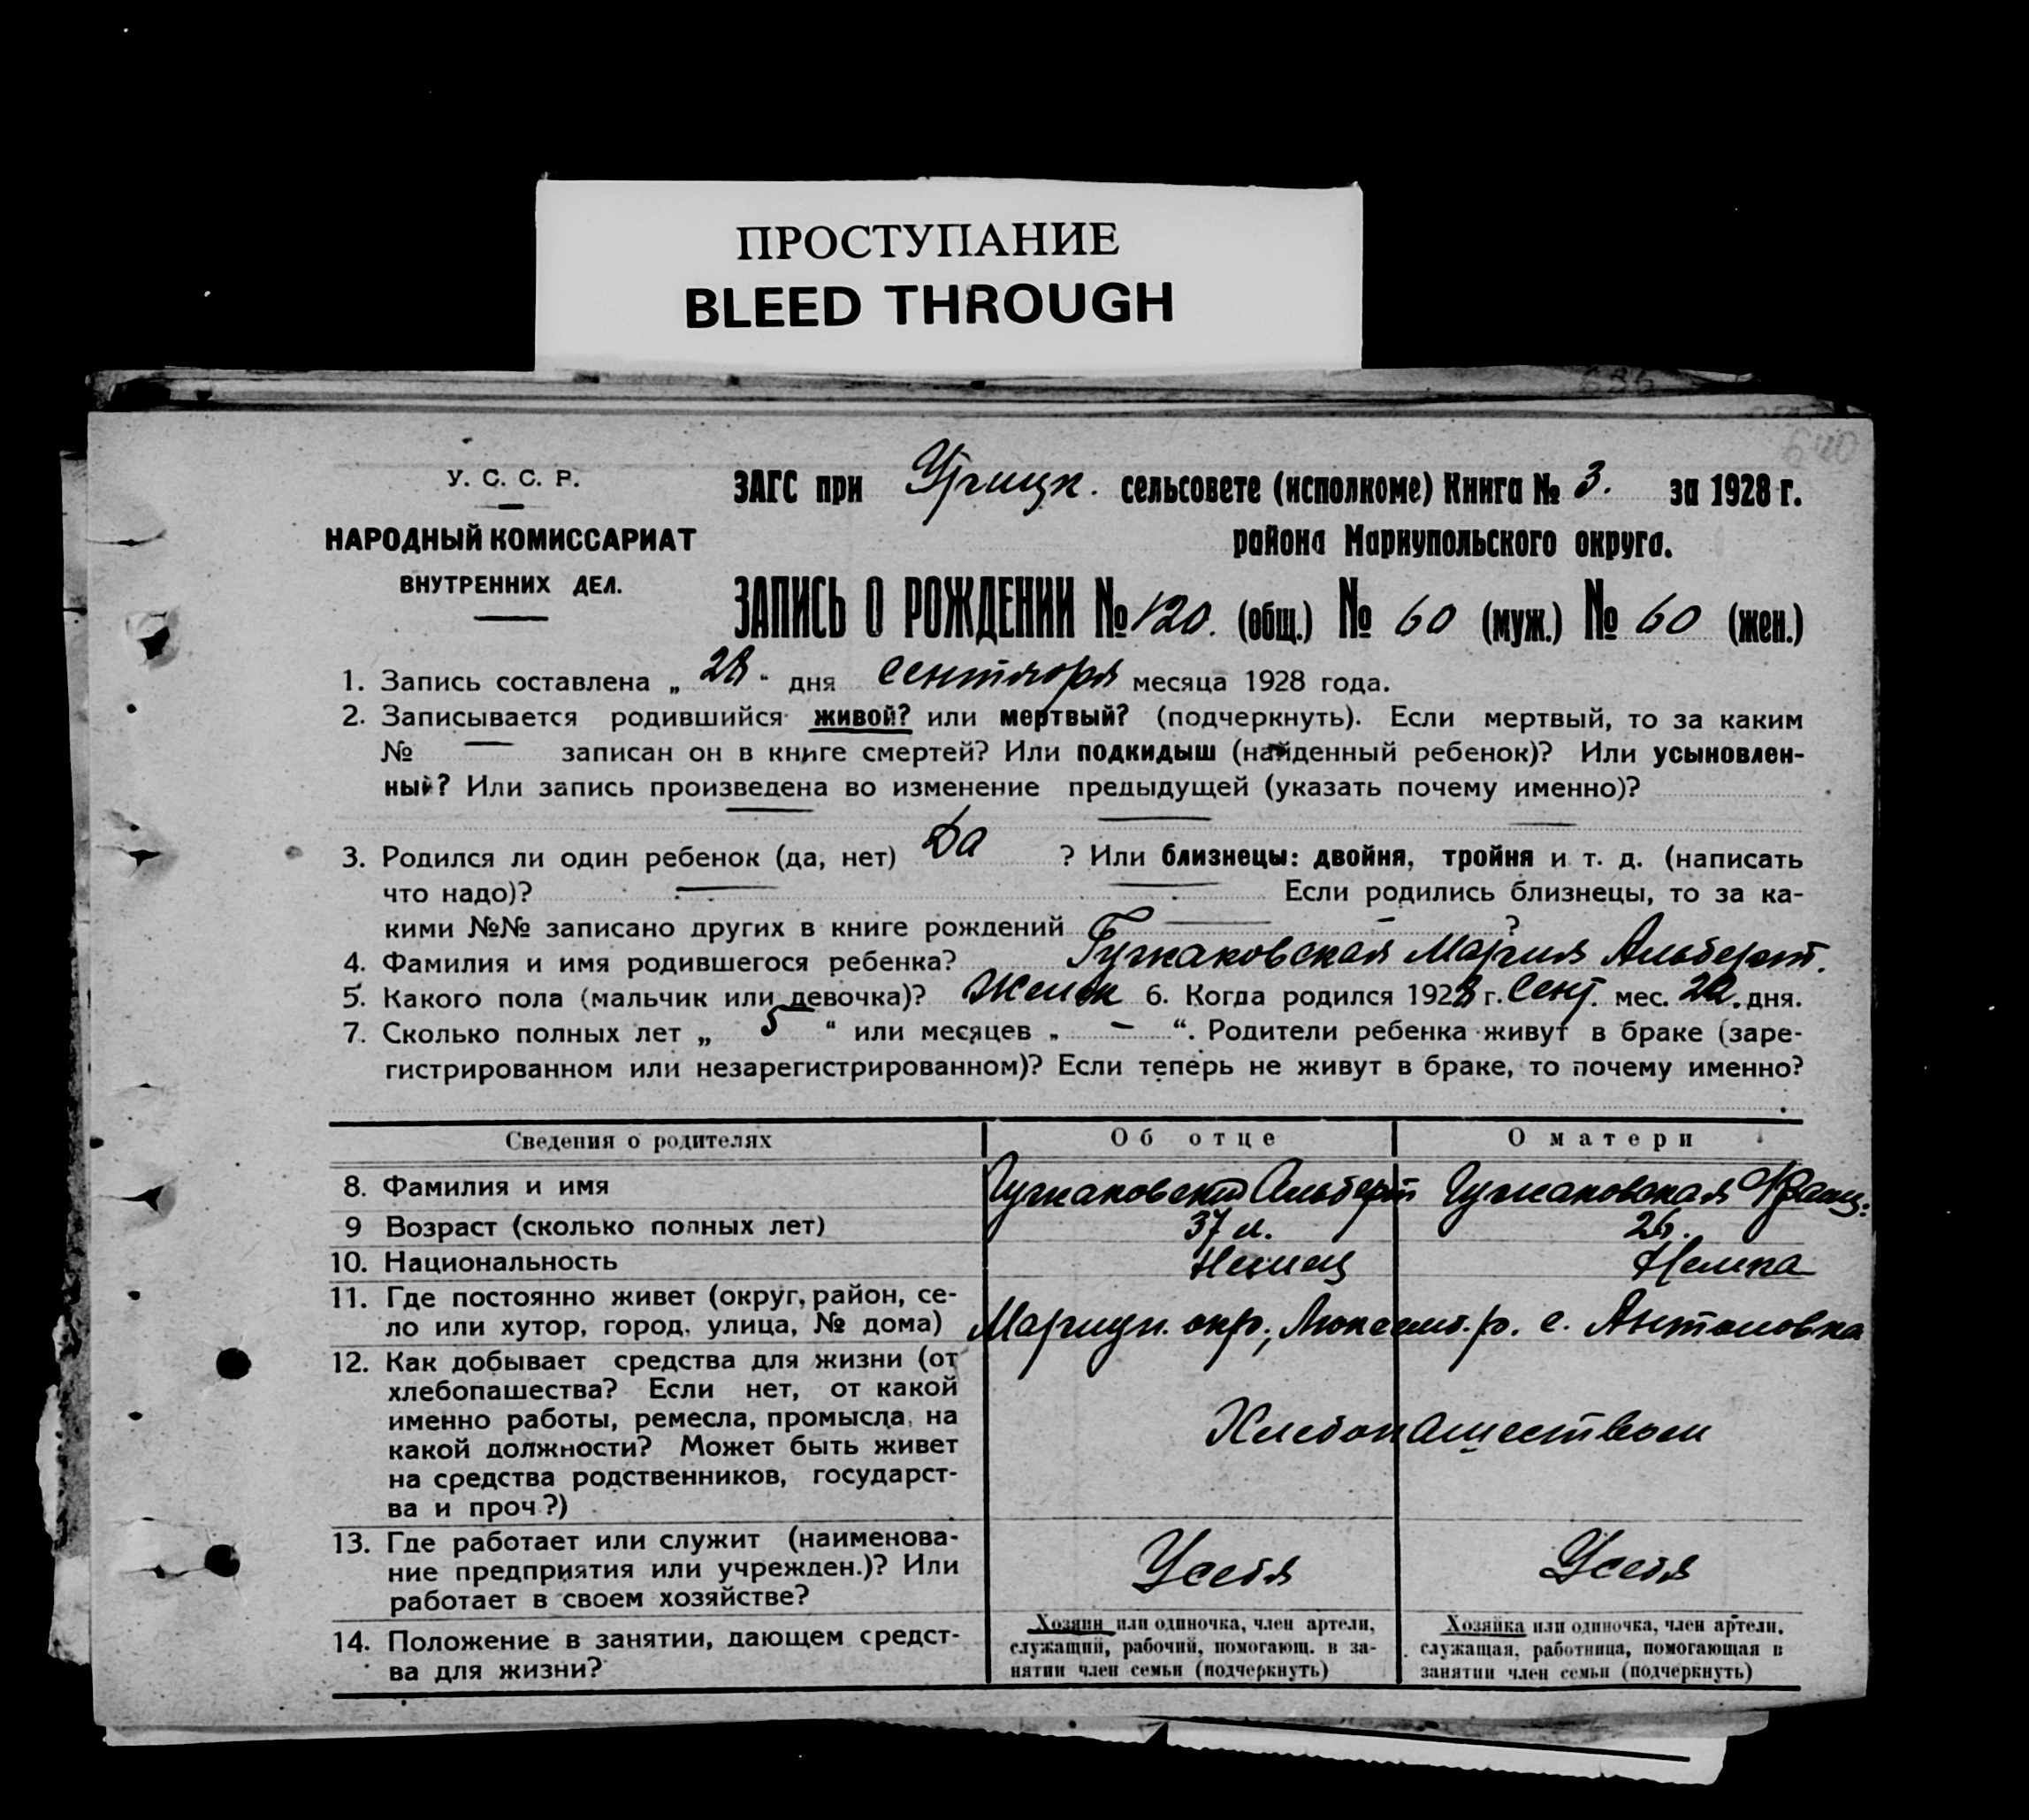 ПРОСТУПАНИЕ
BLEED THROUGH
640
У. С. С. Р.
ЗАГС при Урицк. сельсовете (исполкоме) Книга № 3. за 1928 г.
НАРОДНЫЙ КОМИССАРИАТ
района Мариупольского округа.
ВНУТРЕННИХ ДЕЛ.
ЗАПИСЬ О РОЖДЕНИИ № 120. (общ.) № 60 (муж.) № 60 (жен.)
1. Запись составлена „ 28 “ дня сентября месяца 1928 года.
2. Записывается родившийся живой? или мертвый? (подчеркнуть). Если мертвый, то за каким
№ — записан он в книге смертей? Или подкидыш (найденный ребенок)? Или усыновлен-
ный? Или запись произведена во изменение предыдущей (указать почему именно)?
3. Родился ли один ребенок (да, нет) Да ? Или близнецы: двойня, тройня и т. д. (написать
что надо)? — — Если родились близнецы, то за ка-
кими №№ записано других в книге рождений — ?
4. Фамилия и имя родившегося ребенка? Гужаковская Мария Альберт.
5. Какого пола (мальчик или девочка)? 6. Когда родился 1928 г. Сент. мес. 22. дня.
7. Сколько полных лет „ 5 “ или месяцев „ — “. Родители ребенка живут в браке (заре-
гистрированном или незарегистрированном)? Если теперь не живут в браке, то почему именно?
Сведения о родителях Об отце О матери
8. Фамилия и имя Гужаковский Альберт Гужаковская Франц.
9 Возраст (сколько полных лет) 37 л. 26.
10. Национальность Немец Немка
11. Где постоянно живет (округ, район, се-
ло или хутор, город, улица, № дома) Мариуп. окр., Люксемб. р. с. Антоновка
12. Как добывает средства для жизни (от
хлебопашества? Если нет, от какой
именно работы, ремесла, промысла, на
какой должности? Может быть живет
на средства родственников, государст-
ва и проч?)
Хлебопашеством
13. Где работает или служит (наименова-
ние предприятия или учрежден.)? Или
работает в своем хозяйстве?
У себя У себя
14. Положение в занятии, дающем средст-
ва для жизни?
Хозяин или одиночка, член артели,
служащий, рабочий, помогающ. в за-
нятии член семьи (подчеркнуть)
Хозяйка или одиночка, член артели,
служащая, работница, помогающая в
занятии член семьи (подчеркнуть)